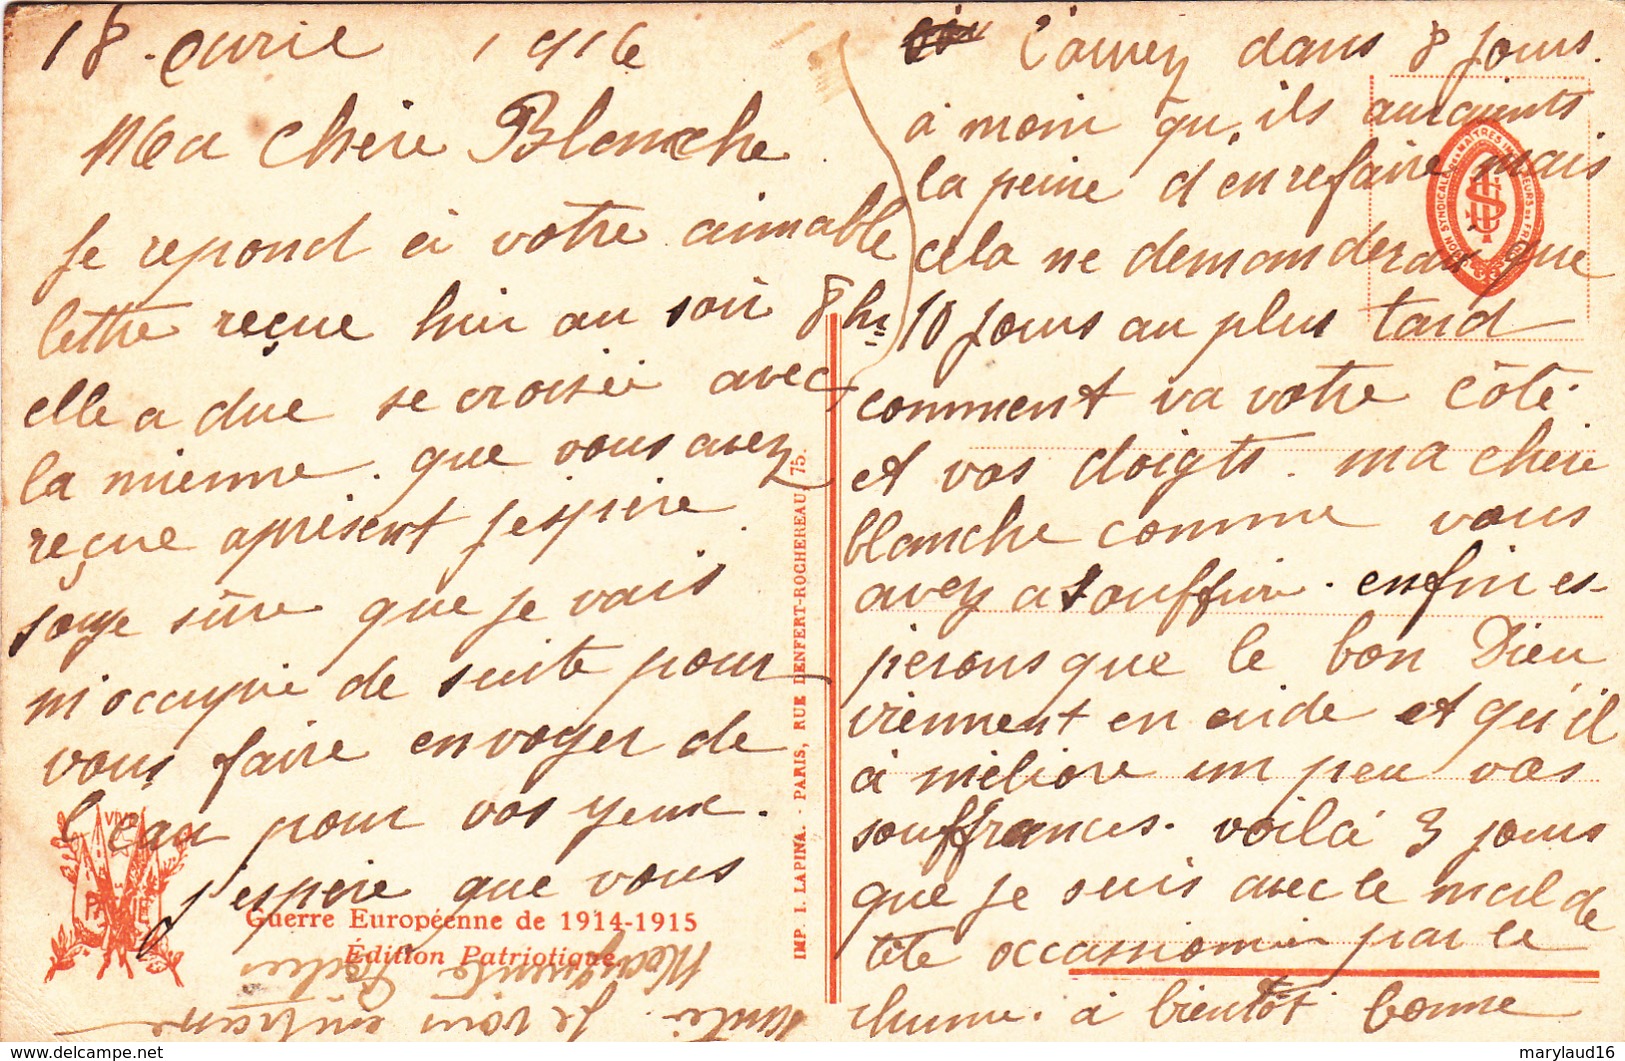 18 avril 1916
Ma chère Blanche
Je repond à votre aimable
lettre reçue hier au soir 8 hrs
elle a due se croisée avec
la mienne. que vous avez
reçue aprésent j'espère
soye sûre que je vais
m'occupée de suite pour
vous faire envoyer de
l'eau pour vos yeux.
j'espère que vous
l'aurez dans 8 jours.
à moin qu'ils auraients
la peine d'en refaire mais
cela ne demanderai que
10 jours au plus tard
comment va votre côté
et vos doigts. ma chère
blanche comme vous
avez a souffrir. enfin es-
perons que le bon Dieu
viennent en aide et qu'il
à méliore un peu vos
souffrances. voilà 3 jours
que je suis avec le mal de
tête occassionnér par le
rhume. à bientôt bonne
santée. Je vous embrasse
Marguerite
VIVE
PATRIE
Guerre Européenne de 1914-1915
Édition Patriotique
IMP. I. LAPINA. - PARIS, RUE DENFERT-ROCHEREAU, 75.
UNION SYNDICALE DES MAITRES IMPRIMEURS DE FRANCE
marylaud16